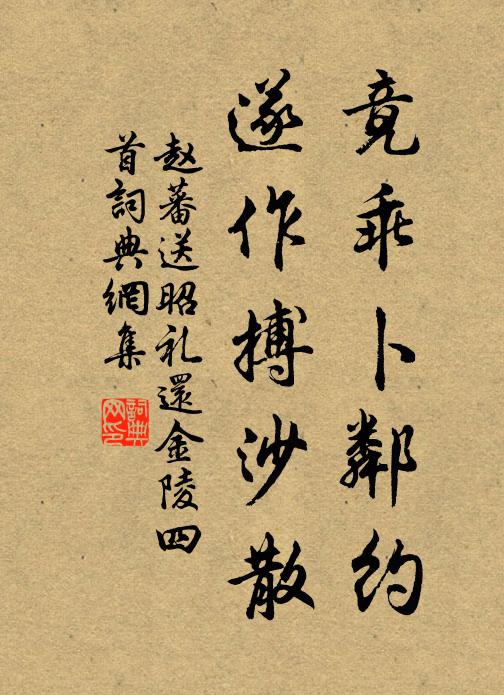 竟乖卜鄰約
遂作搏沙散
赵蕃送昭礼還金陵四
首詞典網集
詞典网印